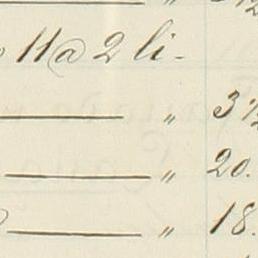 11 @ 2 li-
— " 3 1/2
— " 20.
— " 18.